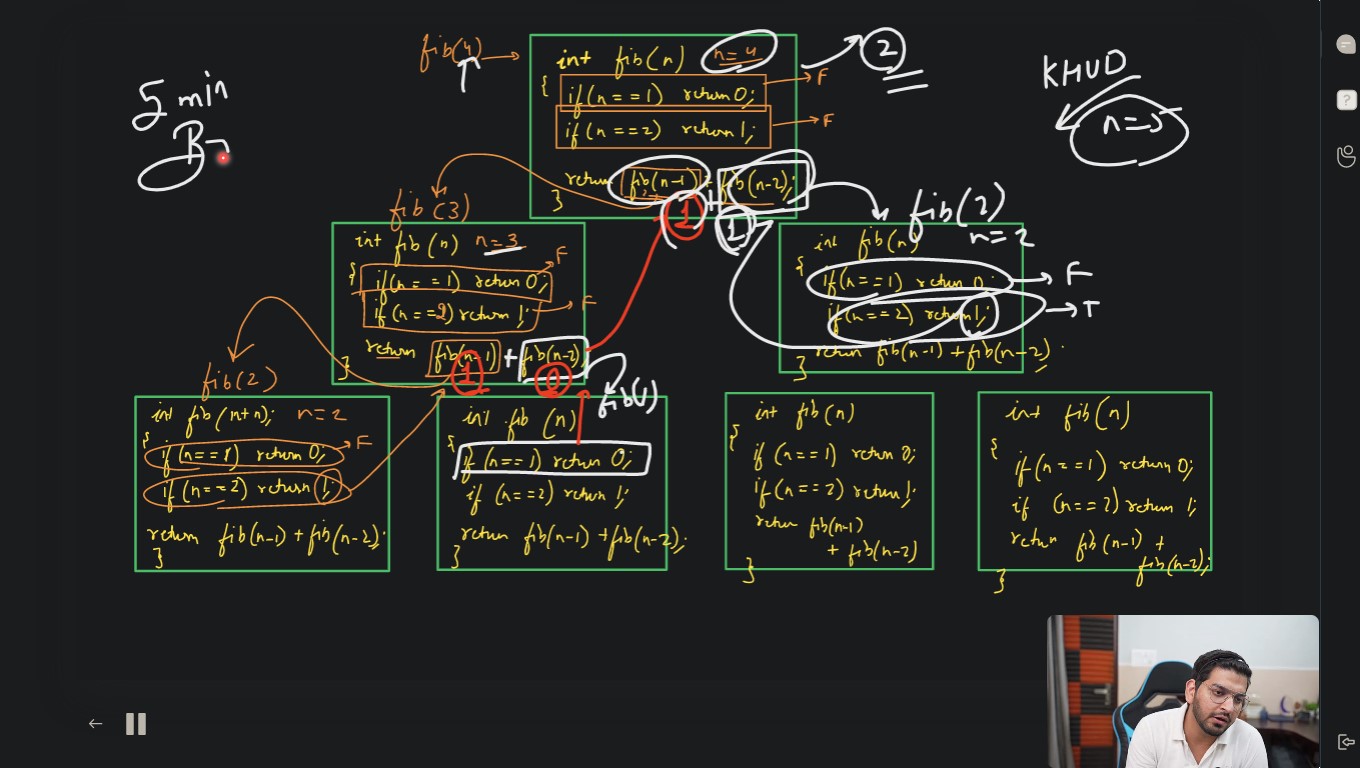 fib(4)
int fib(n) n=4
{
if(n==1) return 0; F
if(n==2) return 1; F
return fib(n-1) + fib(n-2);
}
2
1
1
5 min
KHUD
n=5
fib(3)
int fib(n) n=3
{
if(n==1) return 0; F
if(n==2) return 1; F
return fib(n-1) + fib(n-2)
}
1
0
fib(2)
n=2
int fib(n)
{
if(n==1) return 0; F
if(n==2) return 1; T
return fib(n-1)+fib(n-2);
}
fib(2)
int fib(n+n); n=2
{
if(n==1) return 0; F
if(n==2) return 1;
return fib(n-1)+fib(n-2);
}
fib(1)
int fib(n)
{
if(n==1) return 0;
if(n==2) return 1;
return fib(n-1)+fib(n-2);
}
int fib(n)
{
if(n==1) return 0;
if(n==2) return 1;
return fib(n-1)
+ fib(n-2)
}
int fib(n)
{
if(n==1) return 0;
if (n==2) return 1;
return fib(n-1) +
fib(n-2);
}